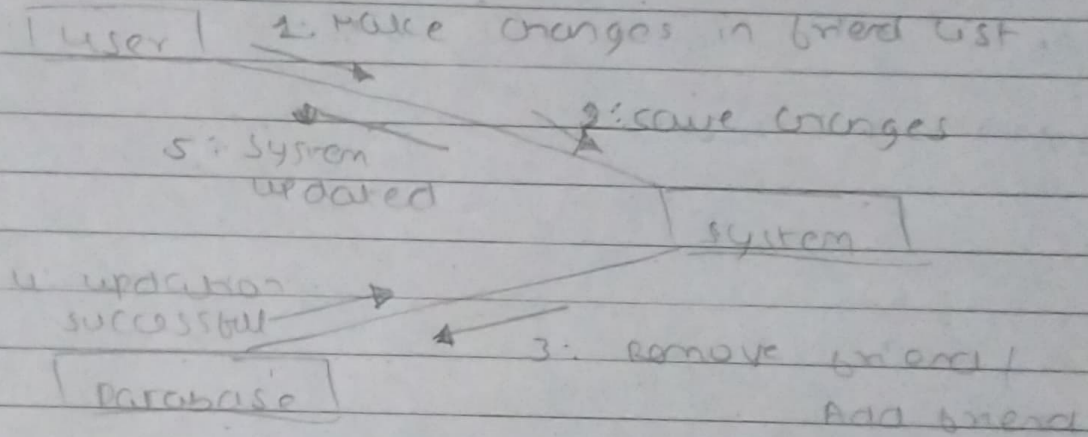 User 1: Make changes in friend list
2: save changes
5: System
updated
system
4 updation
successful
3: Remove friend /
Database
Add friend